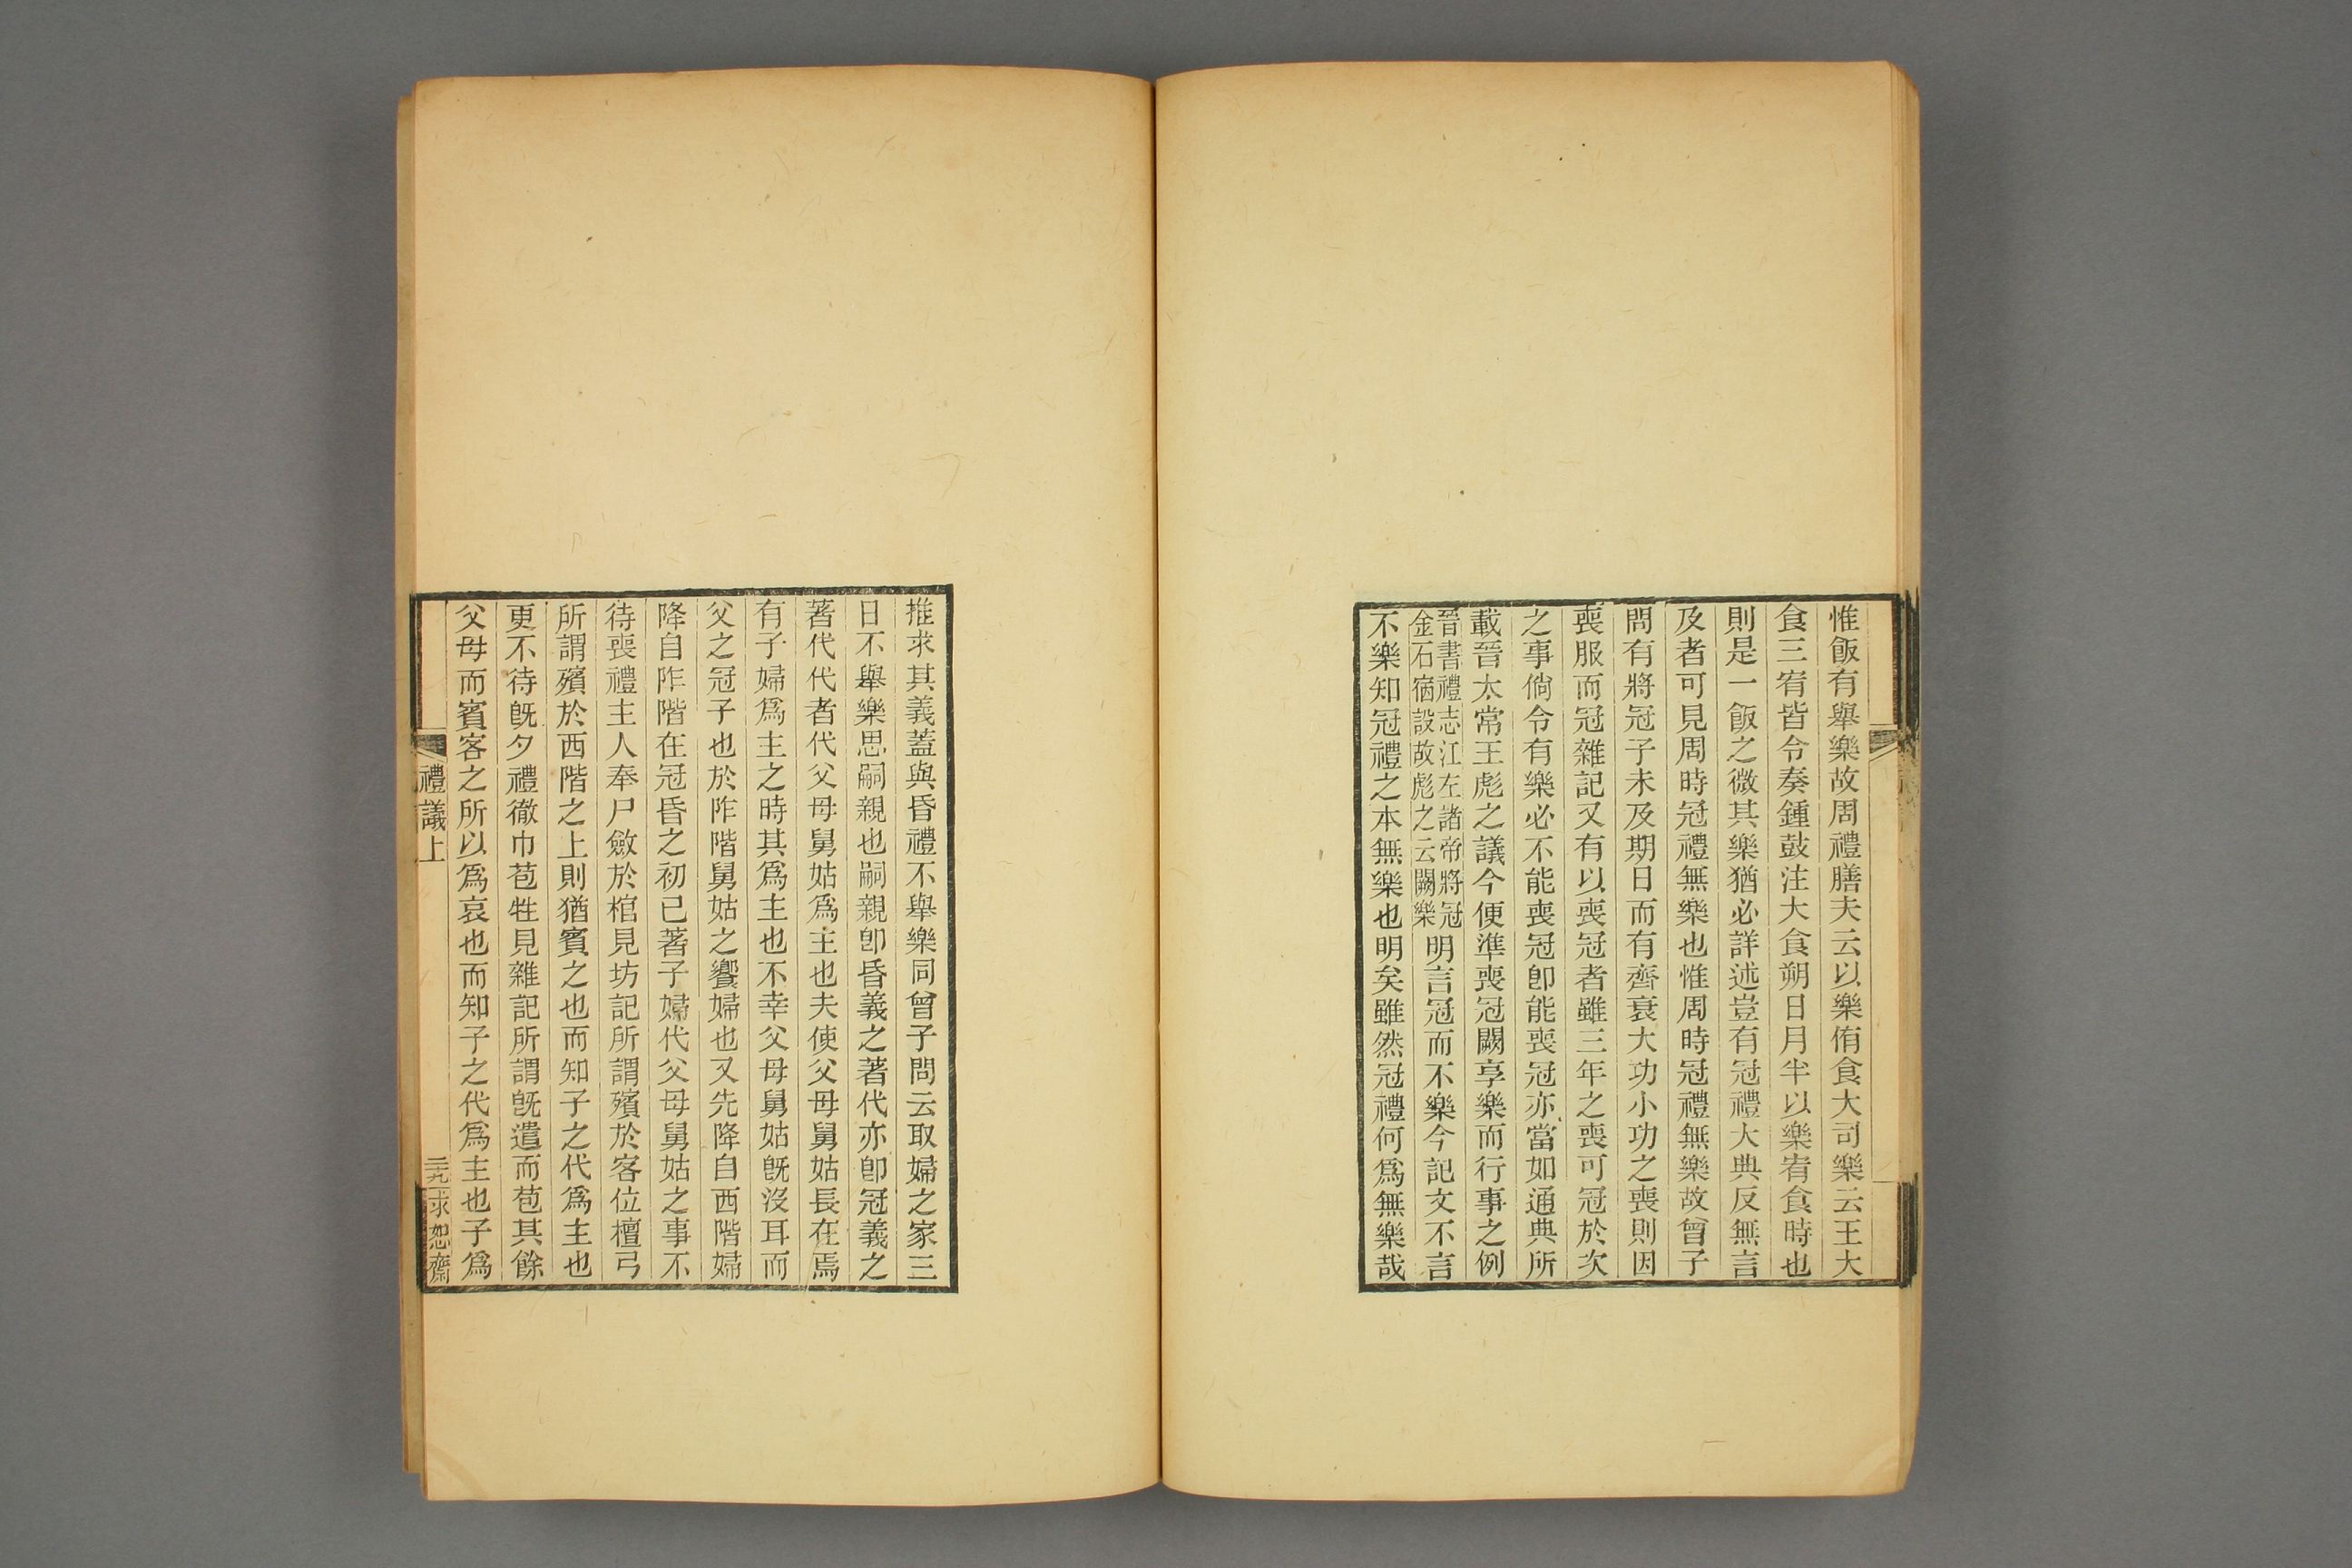 惟飯有舉樂故周禮膳夫云以樂侑食大司樂云王大
食三宥皆令奏鍾鼓注大食朔日月半以樂宥食時也
則是一飯之微其樂猶必詳述豈有冠禮大典反無言
及者可見周時冠禮無樂也惟周時冠禮無樂故曾子
問有將冠子未及期日而有齊衰大功小功之喪則因
喪服而冠雜記又有以喪冠者雖三年之喪可冠於次
之事倘令有樂必不能喪冠卽能喪冠亦當如通典所
載晉太常王彪之議今便準喪冠闕享樂而行事之例
晉書禮志江左諸帝將冠
金石宿設故彪之云闕樂
明言冠而不樂今記文不言
不樂知冠禮之本無樂也明矣雖然冠禮何爲無樂哉
推求其義蓋與昏禮不舉樂同曾子問云取婦之家三
日不舉樂思嗣親也嗣親卽昏義之著代亦卽冠義之
著代代者代父母舅姑爲主也夫使父母舅姑長在焉
有子婦爲主之時其爲主也不幸父母舅姑旣沒耳而
父之冠子也於阼階舅姑之饗婦也又先降自西階婦
降自阼階在冠昏之初已著子婦代父母舅姑之事不
待喪禮主人奉尸斂於棺見坊記所謂殯於客位檀弓
所謂殯於西階之上則猶賓之也而知子之代爲主也
更不待旣夕禮徹巾苞牲見雜記所謂旣遣而苞其餘
父母而賓客之所以爲哀也而知子之代爲主也子爲
禮議上
三九
求恕齋